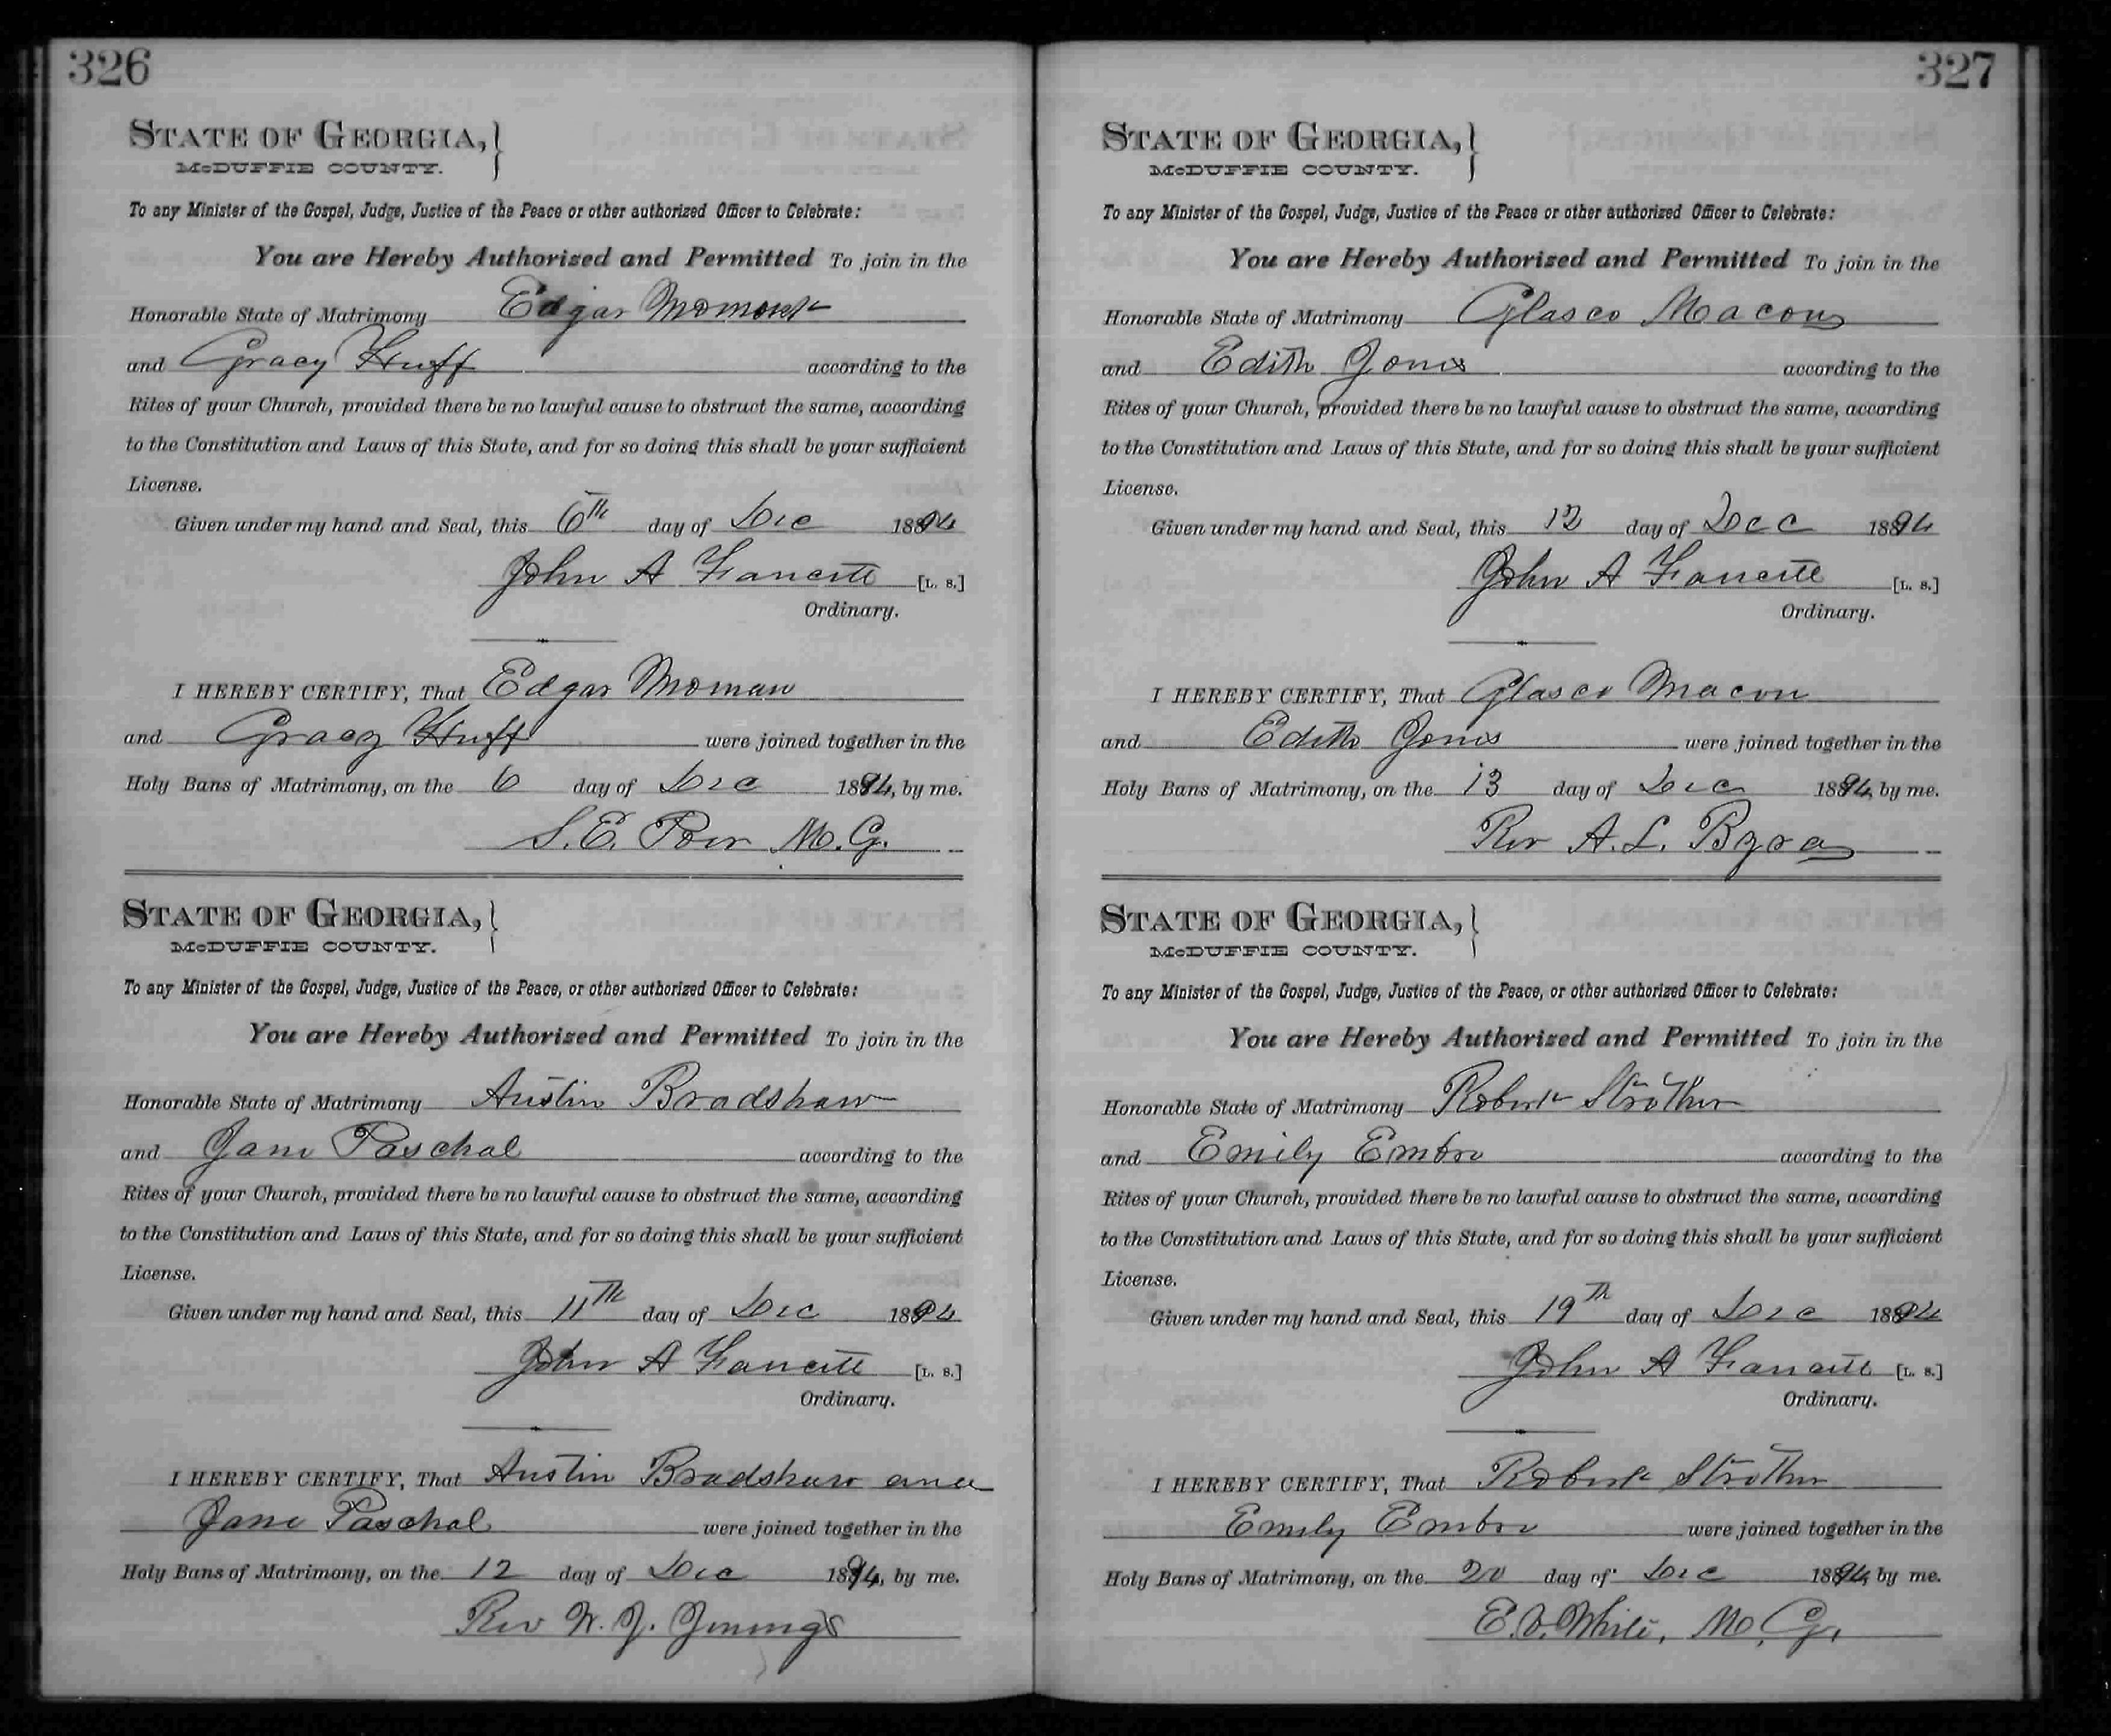 326
STATE OF GEORGIA,
McDUFFIE COUNTY.
To any Minister of the Gospel, Judge, Justice of the Peace or other authorized Officer to Celebrate:
You are Hereby Authorized and Permitted To join in the
Honorable State of Matrimony Edgar
and Gracy Huff according to the
Rites of your Church, provided there be no lawful cause to obstruct the same, according
to the Constitution and Laws of this State, and for so doing this shall be your sufficient
License.
Given under my hand and Seal, this 6th day of Dec 1894
John A [L. S.]
Ordinary.
I HEREBY CERTIFY, That Edgar Moman
and Gracy Huff were joined together in the
Holy Bans of Matrimony, on the 6 day of Dec 1894, by me.
S. E. Poer M. G.
STATE OF GEORGIA,
McDUFFIE COUNTY.
To any Minister of the Gospel, Judge, Justice of the Peace, or other authorized Officer to Celebrate:
You are Hereby Authorized and Permitted To join in the
Honorable State of Matrimony Austin Bradshaw
and Jane Paschal according to the
Rites of your Church, provided there be no lawful cause to obstruct the same, according
to the Constitution and Laws of this State, and for so doing this shall be your sufficient
License.
Given under my hand and Seal, this 11th day of Dec 1894
John A [L. S.]
Ordinary.
I HEREBY CERTIFY, That Austin Bradshaw and
Jane Paschal were joined together in the
Holy Bans of Matrimony, on the 12 day of Dec 1894, by me.
Rev W. J. Jennings
327
STATE OF GEORGIA,
McDUFFIE COUNTY.
To any Minister of the Gospel, Judge, Justice of the Peace or other authorized Officer to Celebrate:
You are Hereby Authorized and Permitted To join in the
Honorable State of Matrimony Glasco Macon
and Edith Jones according to the
Rites of your Church, provided there be no lawful cause to obstruct the same, according
to the Constitution and Laws of this State, and for so doing this shall be your sufficient
License.
Given under my hand and Seal, this 12 day of Dec 1894
John A [L. S.]
Ordinary.
I HEREBY CERTIFY, That Glasco Macon
and Edith Jones were joined together in the
Holy Bans of Matrimony, on the 13 day of Dec 1894, by me.
Rev A. L.
STATE OF GEORGIA,
McDUFFIE COUNTY.
To any Minister of the Gospel, Judge, Justice of the Peace, or other authorized Officer to Celebrate:
You are Hereby Authorized and Permitted To join in the
Honorable State of Matrimony Robert Strother
and Emily Embre according to the
Rites of your Church, provided there be no lawful cause to obstruct the same, according
to the Constitution and Laws of this State, and for so doing this shall be your sufficient
License.
Given under my hand and Seal, this 19th day of Dec 1894
John A [L. S.]
Ordinary.
I HEREBY CERTIFY, That Robert Strother
Emily Embre were joined together in the
Holy Bans of Matrimony, on the 20 day of Dec 1894, by me.
E. V. White, M. G.